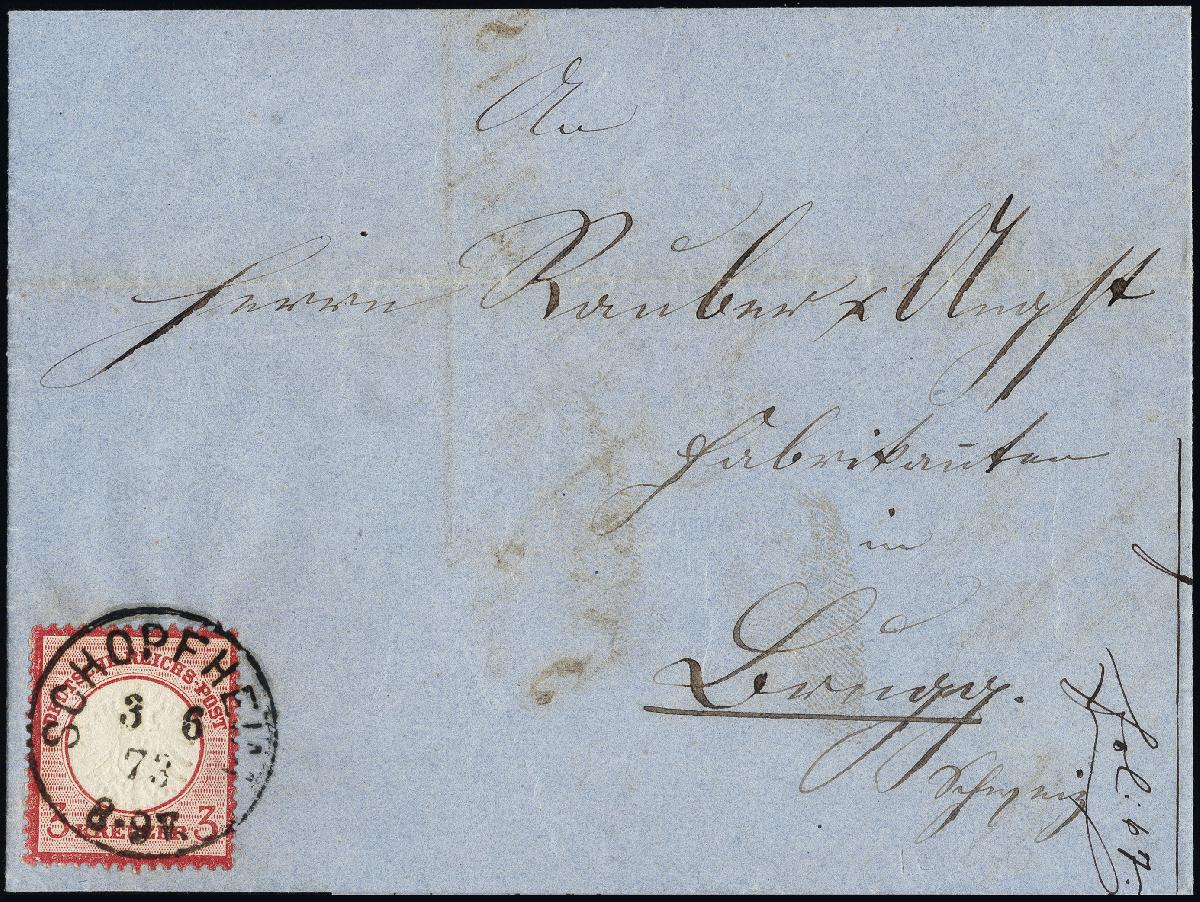 An
Herrn Rauber & Angst
Fabrikanten
in
Brugg.
Schweiz
Fol: 67.
SCHOPFHEIM
3 6
73
8-9V.
DEUTSCHE REICHS-POST
3 KREUZER 3